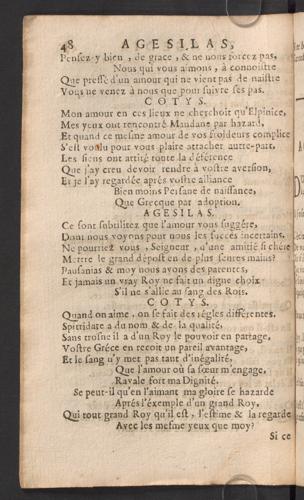 48 AGESILAS,
Pensez-y bien, de grace, & ne nous forcez pas,
Nous qui vous aimons, à connoître
Que pressé d'un amour qui ne vient pas de naistre
Vous ne venez à nous que pour suivre ses pas.
COTYS.
Mon amour en ces lieux ne cherchoit qu'Elpinice,
Mes yeux ont rencontré Mandane par hazard,
Et quand ce mesme amour de vos froideurs complice
S'est voulu pour vous plaire attacher autre-part.
Les siens ont attiré toute la déférence
Que j'ay creu devoir rendre à vostre aversion,
Et je l'ay regardée aprés vostre alliance
Bien moins Persane de naissance,
Que Grecque par adoption.
AGESILAS.
Ce sont subtilitez que l'amour vous suggére,
Dont nous voyons pour nous les succès incertains.
Ne pourriez vous, Seigneur, d'une amitié si chére
Mettre le grand dépost en de plus seures mains?
Pausanias & moy nous avons des parentes,
Et jamais un vray Roy ne fait un digne choix
S'il ne s'allie au sang des Rois.
COTYS.
Quand on aime, on se fait des régles différentes.
Spitridate a du nom & de la qualité,
Sans trosne il a d'un Roy le pouvoir en partage,
Vostre Gréce en reçoit un pareil avantage,
Et le sang n'y met pas tant d'inégalité,
Que l'amour où sa sœur m'engage,
Ravale fort ma Dignité.
Se peut-il qu'en l'aimant ma gloire se hazarde
Aprés l'éxemple d'un grand Roy,
Qui tout grand Roy qu'il est, l'estime & la regarde
Avec les mesme yeux que moy?
Si ce